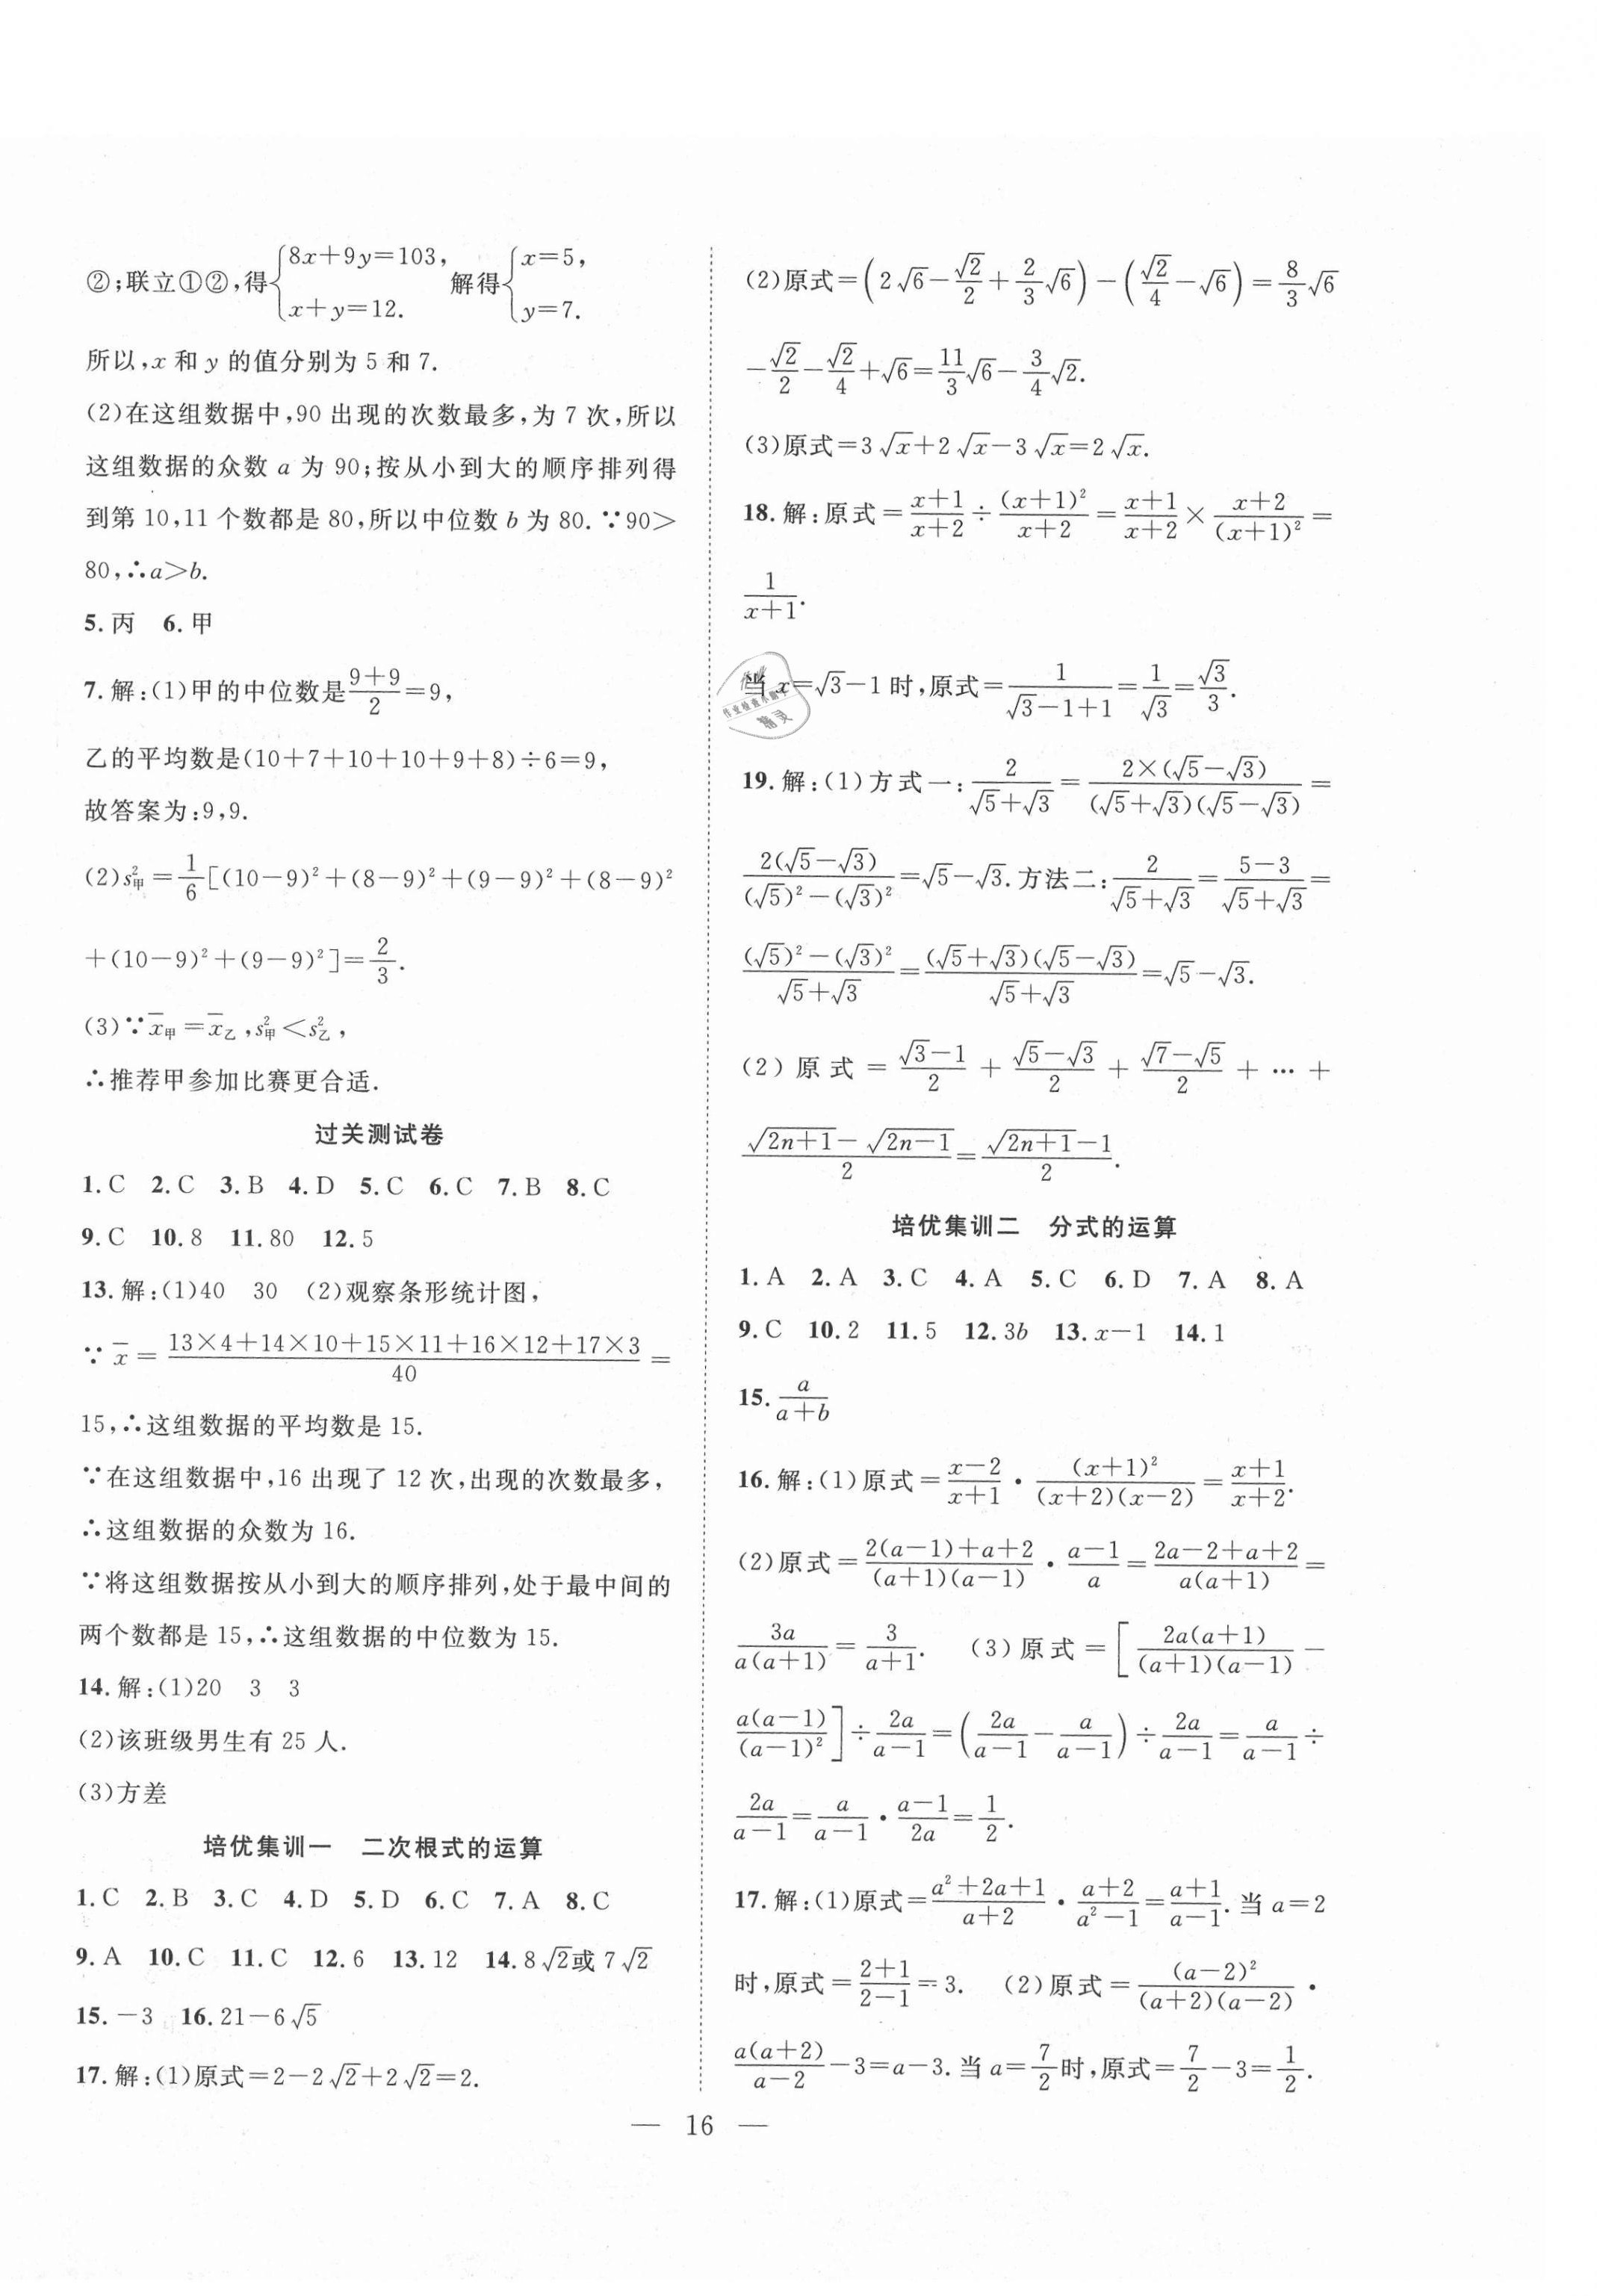 ②;联立①②,得{8x+9y=103, x+y=12. 解得{x=5, y=7.
所以,x 和 y 的值分别为 5 和 7.
(2)在这组数据中,90 出现的次数最多,为 7 次,所以
这组数据的众数 a 为 90;按从小到大的顺序排列得
到第 10,11 个数都是 80,所以中位数 b 为 80. ∵90>
80,∴a>b.
5. 丙 6. 甲
7. 解:(1)甲的中位数是(9+9)/2=9,
乙的平均数是(10+7+10+10+9+8)÷6=9,
故答案为:9,9.
(2)s²甲=1/6[(10-9)²+(8-9)²+(9-9)²+(8-9)²
+(10-9)²+(9-9)²]=2/3.
(3)∵x̄甲=x̄乙,s²甲<s²乙,
∴推荐甲参加比赛更合适.
过关测试卷
1. C 2. C 3. B 4. D 5. C 6. C 7. B 8. C
9. C 10. 8 11. 80 12. 5
13. 解:(1)40 30 (2)观察条形统计图,
∵x̄=(13×4+14×10+15×11+16×12+17×3)/40=
15,∴这组数据的平均数是 15.
∵在这组数据中,16 出现了 12 次,出现的次数最多,
∴这组数据的众数为 16.
∵将这组数据按从小到大的顺序排列,处于最中间的
两个数都是 15,∴这组数据的中位数为 15.
14. 解:(1)20 3 3
(2)该班级男生有 25 人.
(3)方差
培优集训一 二次根式的运算
1. C 2. B 3. C 4. D 5. D 6. C 7. A 8. C
9. A 10. C 11. C 12. 6 13. 12 14. 8√2或 7√2
15. -3 16. 21-6√5
17. 解:(1)原式=2-2√2+2√2=2.
(2)原式=(2√6-√2/2+2/3√6)-(√2/4-√6)=8/3√6
-√2/2-√2/4+√6=11/3√6-3/4√2.
(3)原式=3√x+2√x-3√x=2√x.
18. 解:原式=(x+1)/(x+2)÷(x+1)²/(x+2)=(x+1)/(x+2)×(x+2)/(x+1)²=
1/(x+1).
当 x=√3-1 时,原式=1/(√3-1+1)=1/√3=√3/3.
19. 解:(1)方式一:2/(√5+√3)=2×(√5-√3)/((√5+√3)(√5-√3))=
2(√5-√3)/((√5)²-(√3)²)=√5-√3. 方法二:2/(√5+√3)=(5-3)/(√5+√3)=
((√5)²-(√3)²)/(√5+√3)=(√5+√3)(√5-√3)/(√5+√3)=√5-√3.
(2)原式=(√3-1)/2+(√5-√3)/2+(√7-√5)/2+…+
(√(2n+1)-√(2n-1))/2=(√(2n+1)-1)/2.
培优集训二 分式的运算
1. A 2. A 3. C 4. A 5. C 6. D 7. A 8. A
9. C 10. 2 11. 5 12. 3b 13. x-1 14. 1
15. a/(a+b)
16. 解:(1)原式=(x-2)/(x+1)·(x+1)²/((x+2)(x-2))=(x+1)/(x+2).
(2)原式=(2(a-1)+a+2)/((a+1)(a-1))·(a-1)/a=(2a-2+a+2)/(a(a+1))=
3a/(a(a+1))=3/(a+1). (3)原式=[2a(a+1)/((a+1)(a-1))-
a(a-1)/(a-1)²]÷2a/(a-1)=(2a/(a-1)-a/(a-1))÷2a/(a-1)=a/(a-1)÷
2a/(a-1)=a/(a-1)·(a-1)/2a=1/2.
17. 解:(1)原式=(a²+2a+1)/(a+2)·(a+2)/(a²-1)=(a+1)/(a-1). 当 a=2
时,原式=(2+1)/(2-1)=3. (2)原式=(a-2)²/((a+2)(a-2))·
a(a+2)/(a-2)-3=a-3. 当 a=7/2时,原式=7/2-3=1/2.
— 16 —
作业
作业检查小助手
精灵